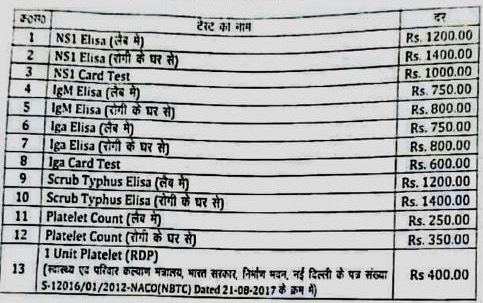 क०सं० टेस्ट का नाम दर
1 NS1 Elisa (लैब मे) Rs. 1200.00
2 NS1 Elisa (रोगी के घर से) Rs. 1400.00
3 NS1 Card Test Rs. 1000.00
4 IgM Elisa (लैब मे) Rs. 750.00
5 IgM Elisa (रोगी के घर से) Rs. 800.00
6 Iga Elisa (लैब मे) Rs. 750.00
7 Iga Elisa (रोगी के घर से) Rs. 800.00
8 Iga Card Test Rs. 600.00
9 Scrub Typhus Elisa (लैब मे) Rs. 1200.00
10 Scrub Typhus Elisa (रोगी के घर से) Rs. 1400.00
11 Platelet Count (लैब मे) Rs. 250.00
12 Platelet Count (रोगी के घर से) Rs. 350.00
13 1 Unit Platelet (RDP) Rs 400.00
(स्वास्थ्य एवं परिवार कल्याण मंत्रालय, भारत सरकार, निर्माण भवन, नई दिल्ली के पत्र संख्या
S-12016/01/2012-NACO(NBTC) Dated 21-08-2017 के क्रम में)